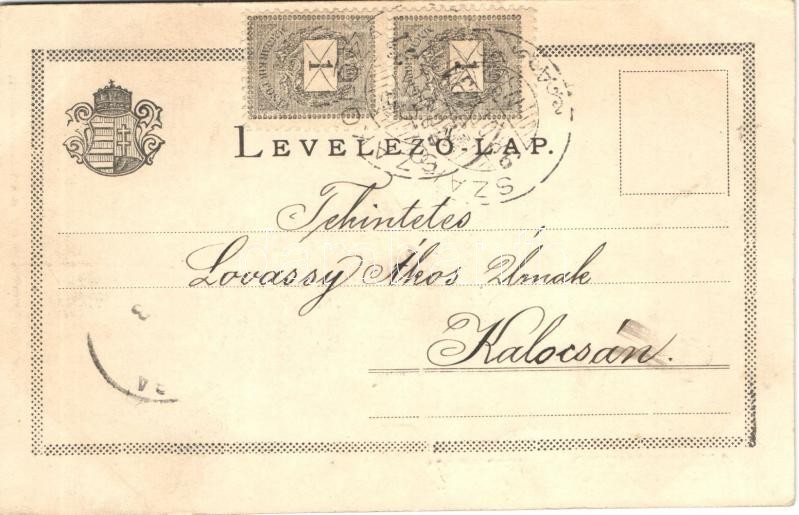 1 1
LEVELEZŐ-LAP.
Tekintetes
Lovassy Ákos Urnak
Kalocsán.